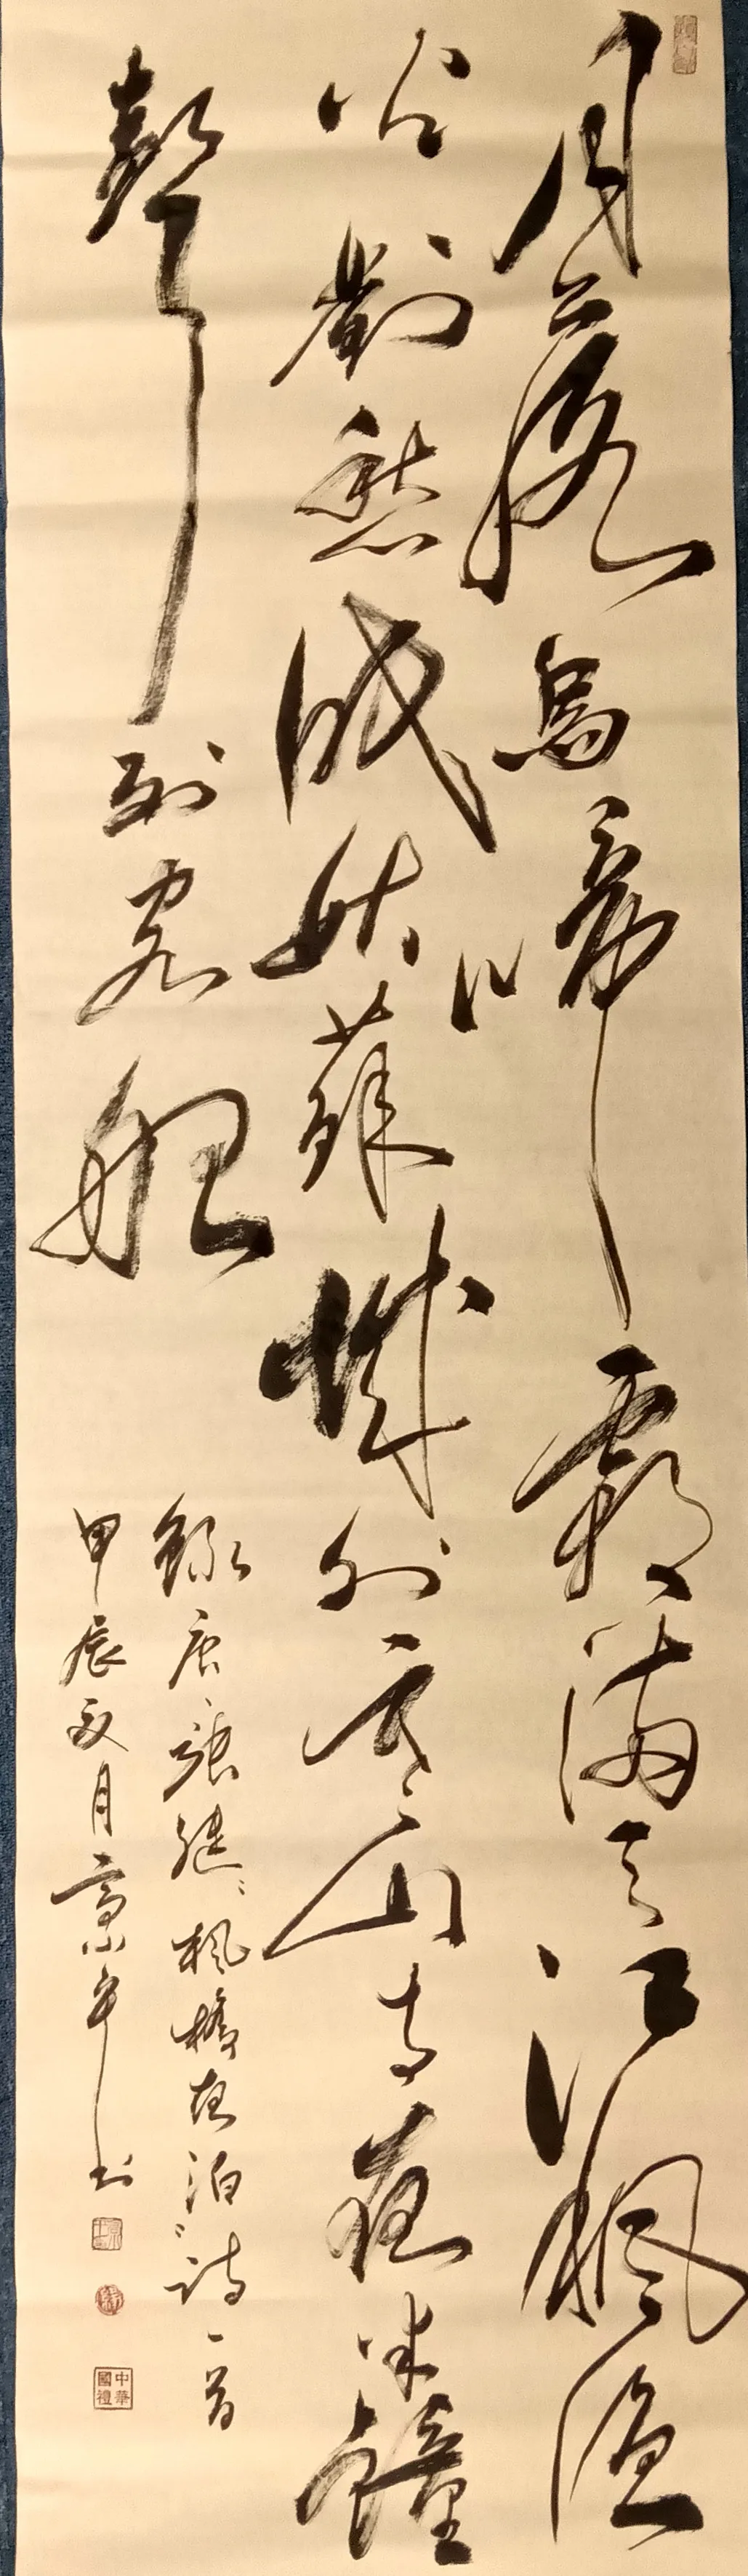 月落烏啼霜滿天江楓漁
火對愁眠姑蘇城外寒山寺夜半鐘
聲到客船
錄唐、張繼"楓橋夜泊"詩一首
甲辰夏月书
中華
國禮